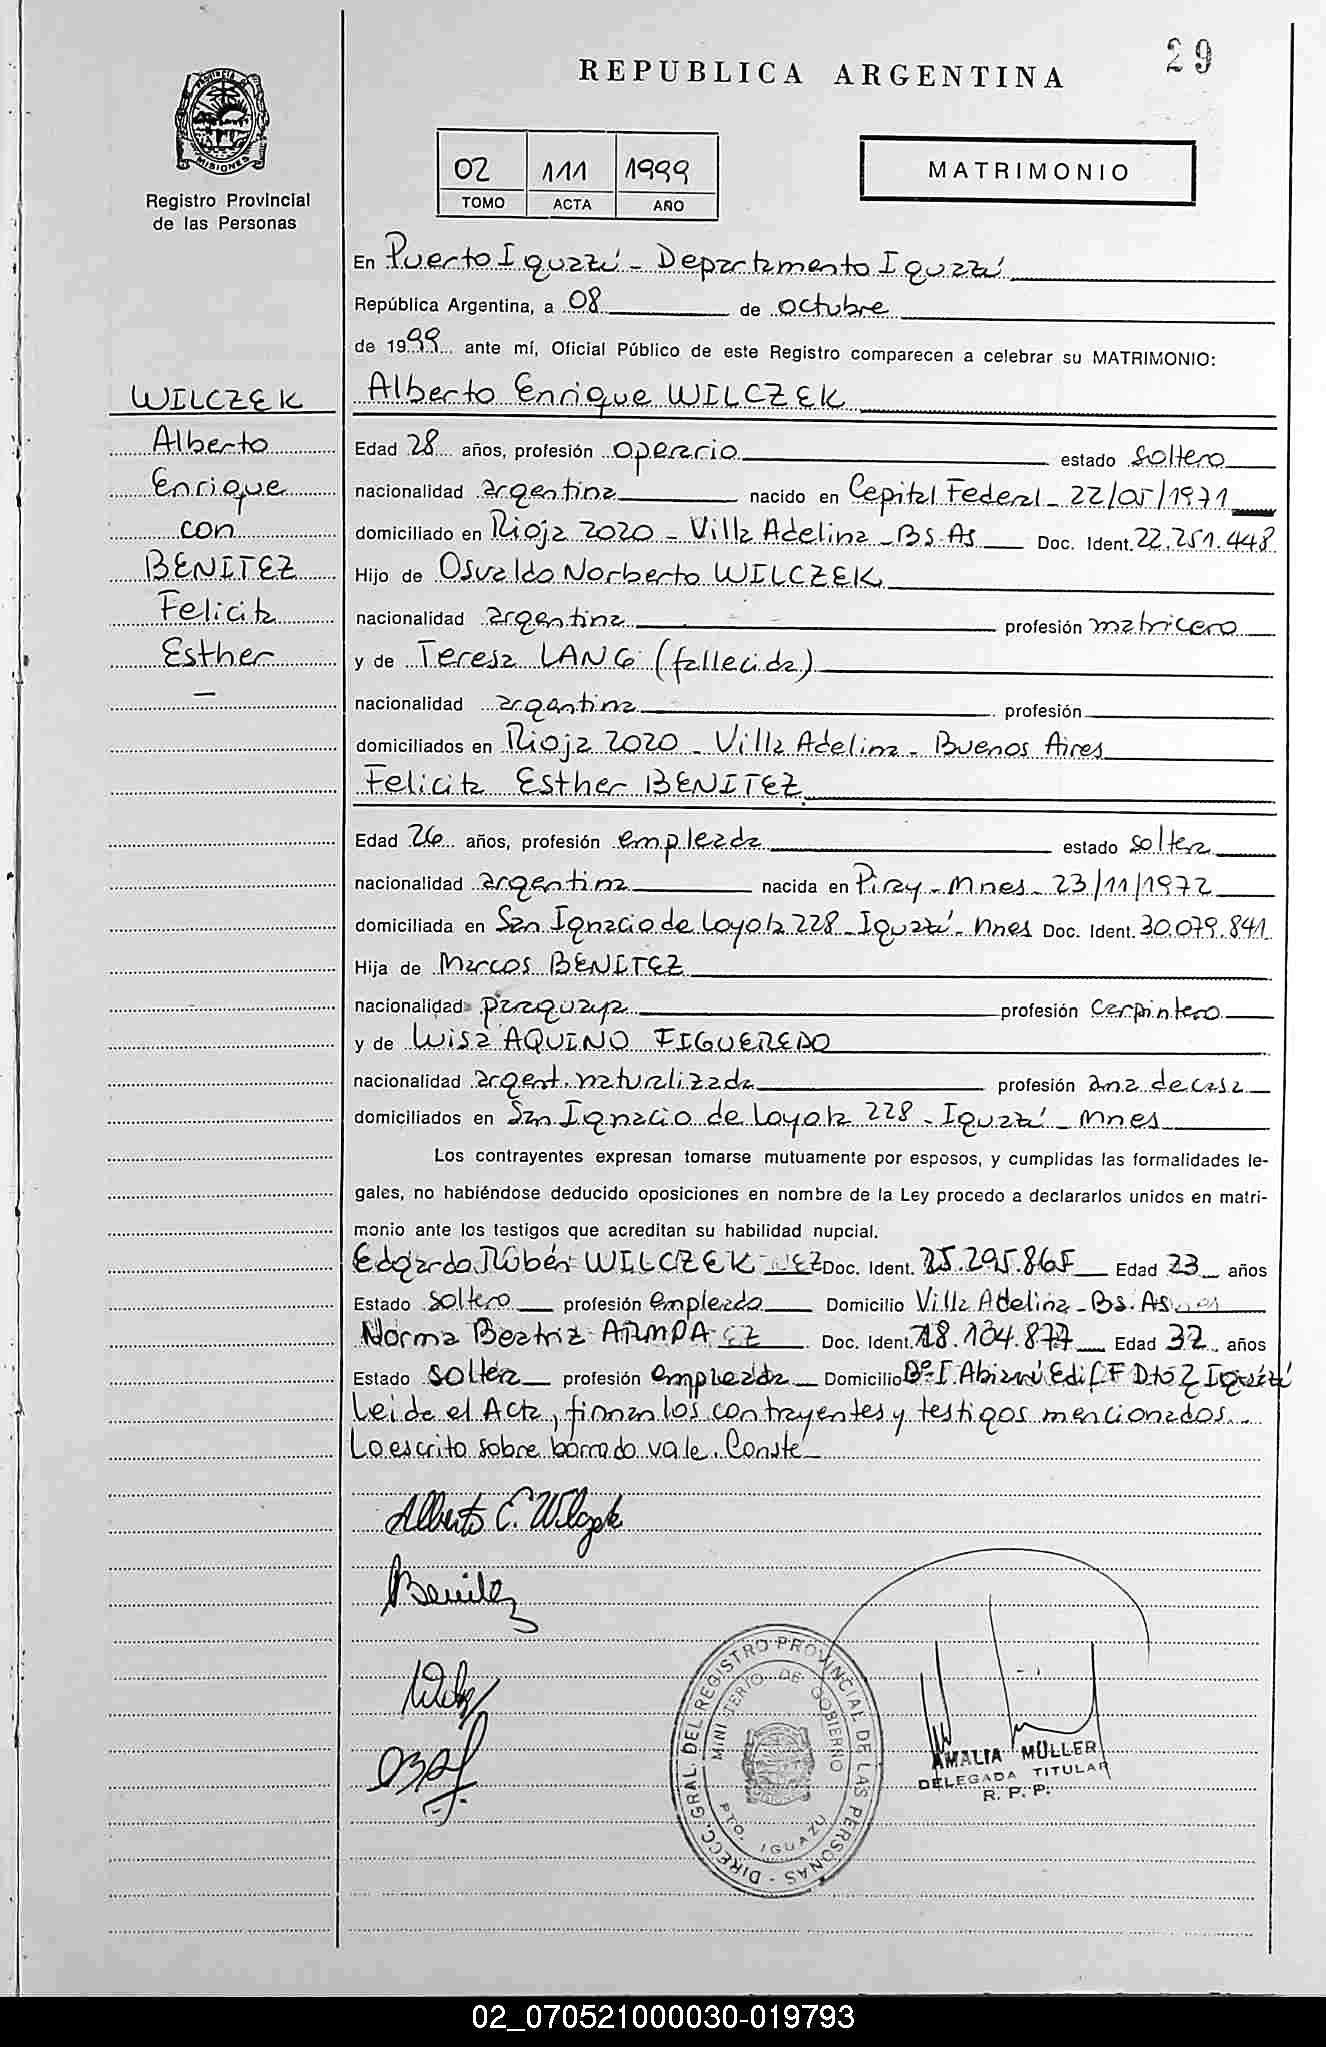 29
REPUBLICA ARGENTINA
PROVINCIA DE
MISIONES
Registro Provincial
de las Personas
02 111 1999
TOMO ACTA AÑO
MATRIMONIO
En Puerto Iguazú - Departamento Iguazú
República Argentina, a 08 de octubre
de 1999 ante mí, Oficial Público de este Registro comparecen a celebrar su MATRIMONIO:
WILCZEK
Alberto
Enrique
con
BENITEZ
Felicita
Esther
—
Alberto Enrique WILCZEK
Edad 28 años, profesión operario estado soltero
nacionalidad argentina nacido en Capital Federal - 22/05/1971
domiciliado en Rioja 2020 - Villa Adelina - Bs.As Doc. Ident. 22.251.448
Hijo de Osvaldo Norberto WILCZEK
nacionalidad argentina profesión matricero
y de Teresa LANG (fallecida)
nacionalidad argentina profesión
domiciliados en Rioja 2020 - Villa Adelina - Buenos Aires
Felicita Esther BENITEZ
Edad 26 años, profesión empleada estado soltera
nacionalidad argentina nacida en Piray - Mnes - 23/11/1972
domiciliada en San Ignacio de Loyola 228 - Iguazú - Mnes Doc. Ident. 30.079.841
Hija de Marcos BENITEZ
nacionalidad paraguaya profesión carpintero
y de Luisa AQUINO FIGUEREDO
nacionalidad argent. naturalizada profesión ama de casa
domiciliados en San Ignacio de Loyola 228 - Iguazú - Mnes
Los contrayentes expresan tomarse mutuamente por esposos, y cumplidas las formalidades le-
gales, no habiéndose deducido oposiciones en nombre de la Ley procedo a declararlos unidos en matri-
monio ante los testigos que acreditan su habilidad nupcial.
Edgardo Rubén WILCZEK Doc. Ident. 25.295.865 Edad 23 años
Estado soltero profesión empleado Domicilio Villa Adelina - Bs.As
Norma Beatriz Doc. Ident. 18.134.877 Edad 32 años
Estado soltera profesión empleada Domicilio Bº I. Edif. F Dto 2 Iguazú
Leida el Acta, firman los contrayentes y testigos mencionados.-
Lo escrito sobre borrado vale. Conste
Alberto E. Wilczek
Benitez
DIRECC. GRAL. DEL REGISTRO PROVINCIAL DE LAS PERSONAS -
MINISTERIO DE GOBIERNO
PTO. IGUAZU
AMALIA MÜLLER
DELEGADA TITULAR
R. P. P.
02_070521000030-019793